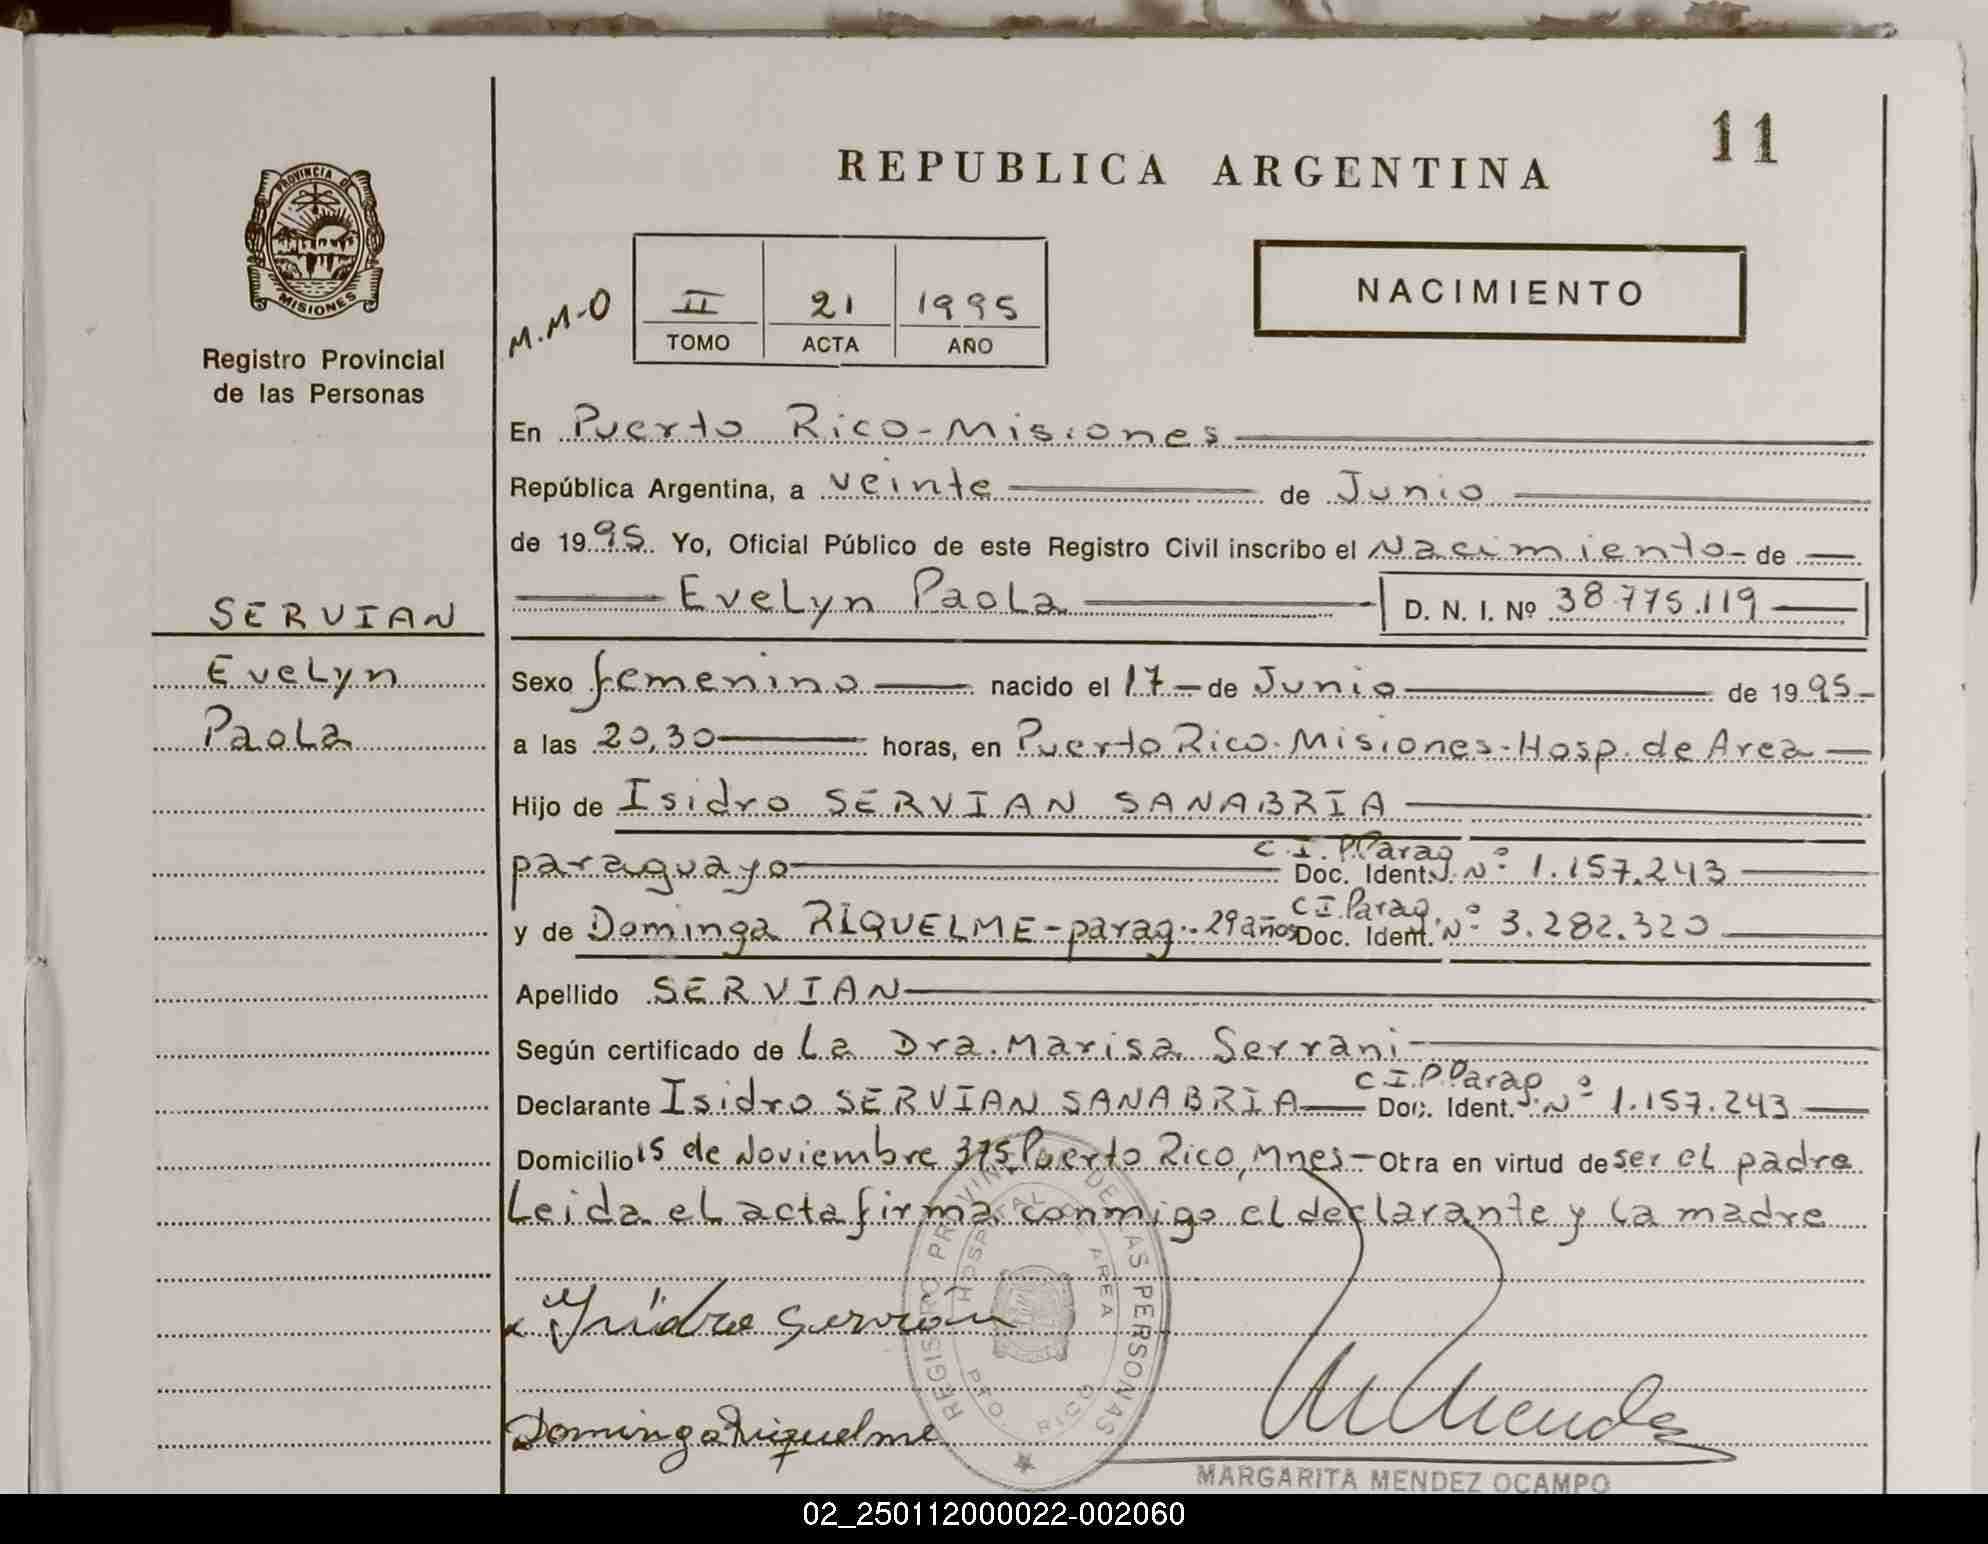 11
REPUBLICA ARGENTINA
PROVINCIA DE
MISIONES
Registro Provincial
de las Personas
M.M-O
II 21 1995
TOMO ACTA AÑO
NACIMIENTO
En Puerto Rico-Misiones
República Argentina, a veinte de Junio
de 1995. Yo, Oficial Público de este Registro Civil inscribo el Nacimiento de
Evelyn Paola D. N. I. Nº 38.775.119
SERVIAN
Evelyn
Paola
Sexo femenino nacido el 17 de Junio de 1995
a las 20,30 horas, en Puerto Rico-Misiones-Hosp. de Area
Hijo de Isidro SERVIAN SANABRIA
paraguayo C.I.P.Parag Doc. Ident. Nº 1.157.243
y de Dominga RIQUELME-parag.. 29 años C I.Parag. Doc. Ident. Nº 3.282.320
Apellido SERVIAN
Según certificado de La Dra. Marisa Serrani
Declarante Isidro SERVIAN SANABRIA C.I.P.Parag Doc. Ident. Nº 1.157.243
Domicilio 15 de Noviembre 375 Puerto Rico, Mnes- Obra en virtud de ser el padre
Leida el acta firma conmigo el declarante y la madre
Isidro Servián
Dominga Riquelme
REGISTRO PROVINCIAL DE LAS PERSONAS
HOSPITAL DE AREA
PTO. RICO
M Mendez
MARGARITA MENDEZ OCAMPO
02_250112000022-002060